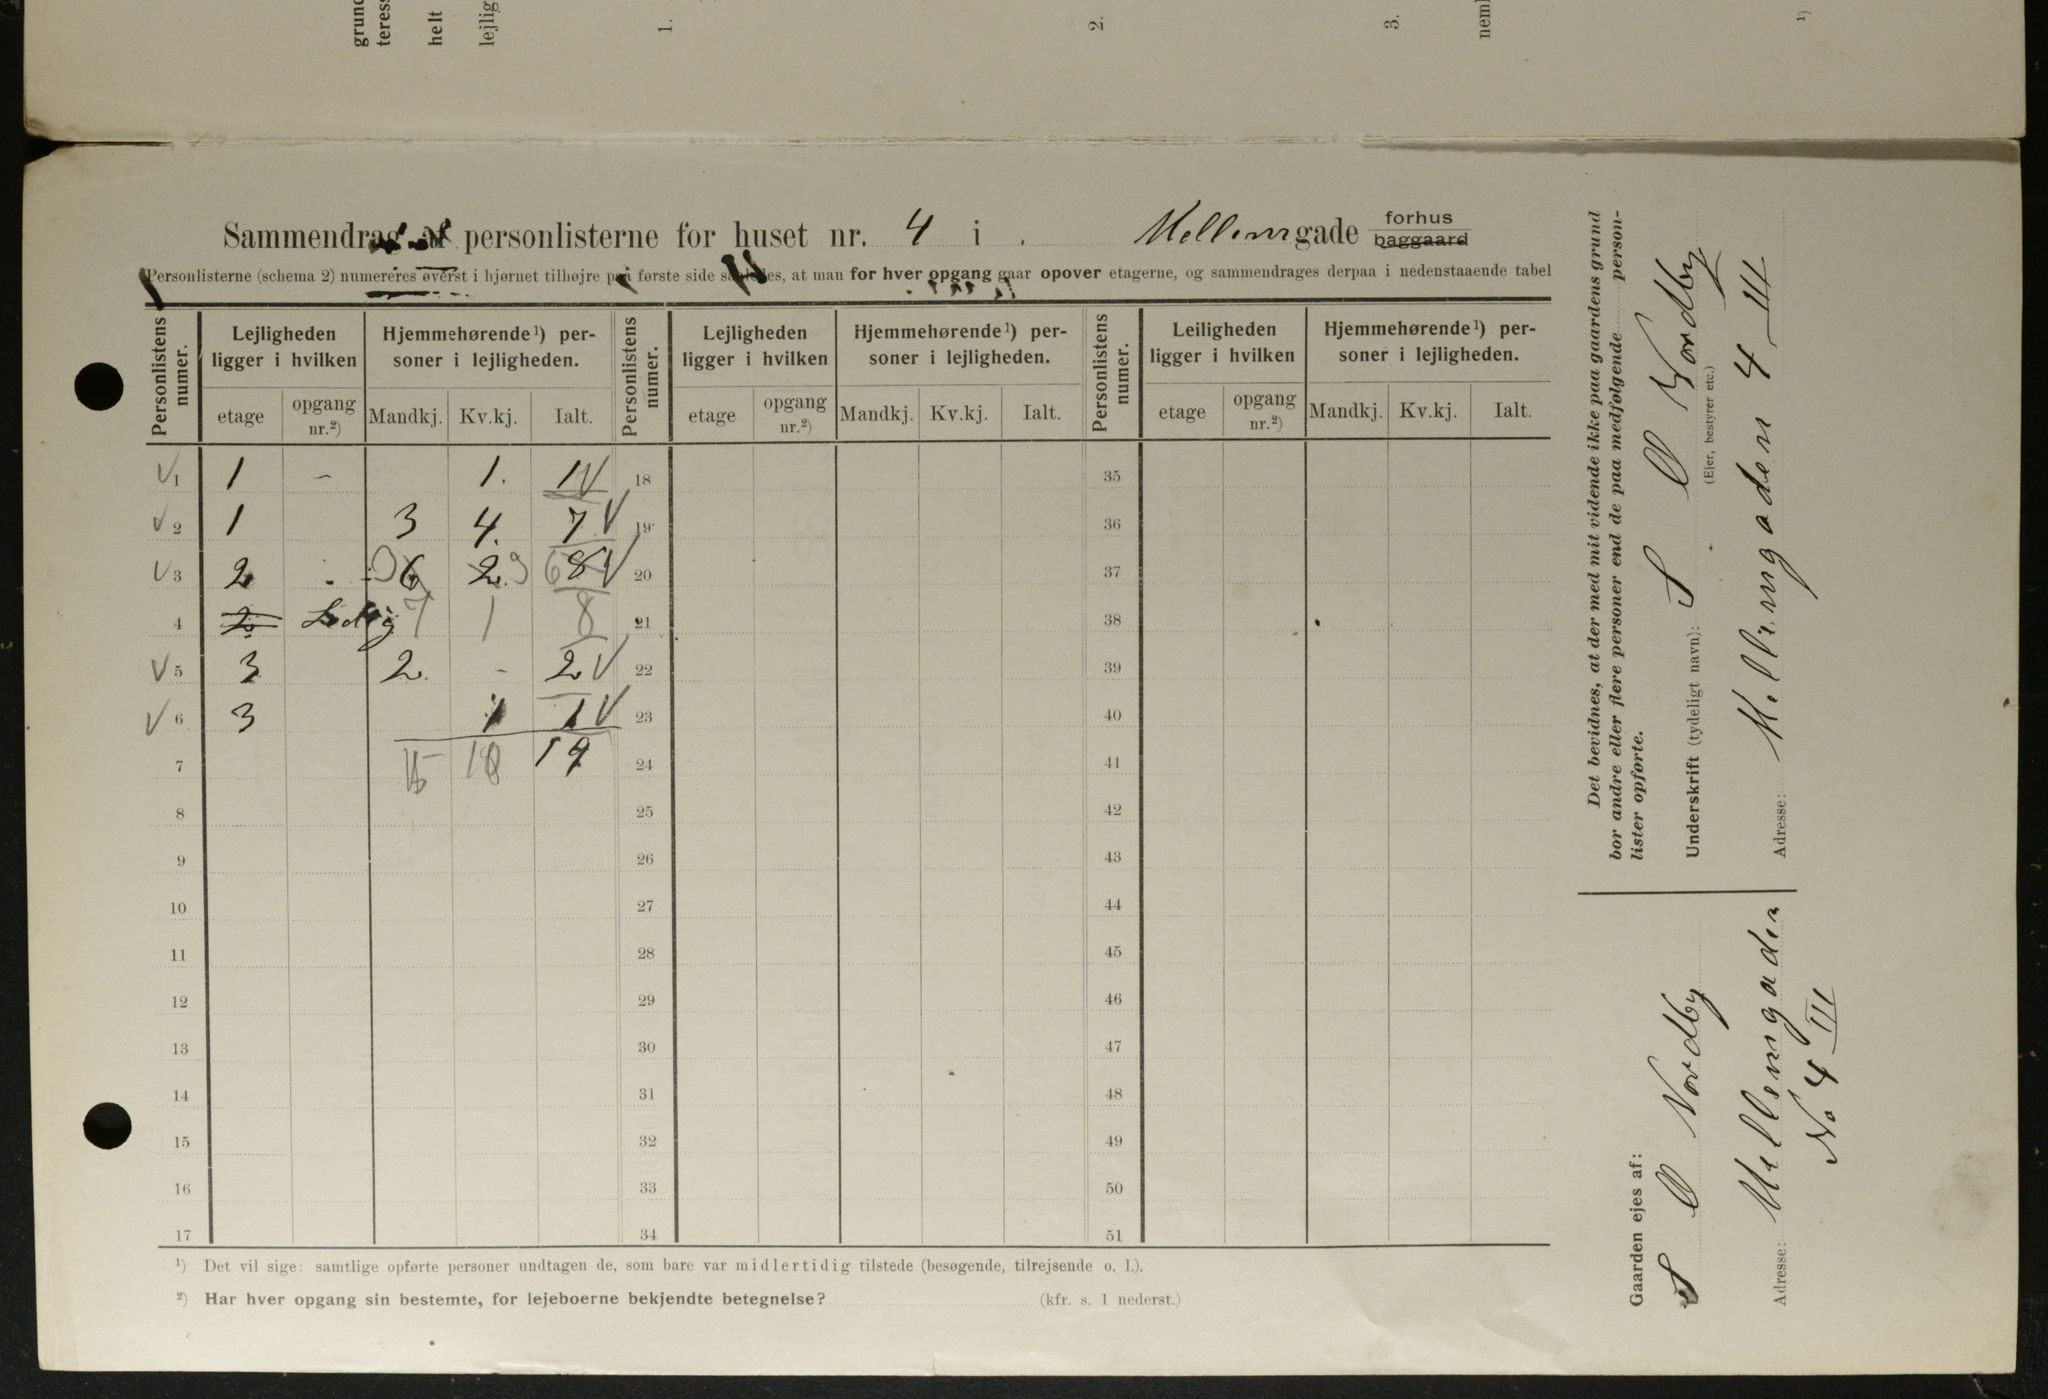 grund
teress
helt
lejlig
1.
2.
3.
neml
¹)
Sammendrag af personlisterne for huset nr. 4 i Mellemgade forhus
baggaard
Personlisterne (schema 2) numereres øverst i hjørnet tilhøjre paa første side saaledes, at man for hver opgang gaar opover etagerne, og sammendrages derpaa i nedenstaaende tabel
Personlistens numer. Lejligheden ligger i hvilken Hjemmehørende ¹) personer i lejligheden. Personlistens numer. Lejligheden ligger i hvilken Hjemmehørende ¹) personer i lejligheden. Personlistens numer. Leiligheden ligger i hvilken Hjemmehørende ¹) personer i lejligheden.
etage opgang nr.²) Mandkj. Kv.kj. Ialt. etage opgang nr.²) Mandkj. Kv.kj. Ialt. etage opgang nr.²) Mandkj. Kv.kj. Ialt.
V 1 1 – 1. 1 V 18 35
V 2 1 3 4. 7 V 19 36
V 3 2 6 2. 8 V 20 37
4 2 Ledig 7 1 8 21 38
V 5 3 2. - 2 V 22 39
V 6 3 1 1 V 23 40
7 19 24 41
8 25 42
9 26 43
10 27 44
11 28 45
12 29 46
13 30 47
14 31 48
15 32 49
16 33 50
17 34 51
¹) Det vil sige: samtlige opførte personer undtagen de, som bare var midlertidig tilstede (besøgende, tilrejsende o. l.).
²) Har hver opgang sin bestemte, for lejeboerne bekjendte betegnelse? (kfr. s. 1 nederst.)
Det bevidnes, at der med mit vidende ikke paa gaardens grund
bor andre eller flere personer end de paa medfølgende person-
lister opførte.
Underskrift (tydeligt navn): S O Nordby
(Ejer, bestyrer etc.)
Adresse: Mellemgaden 4 III
Gaarden ejes af:
S O Nordby
Adresse: Mellemgaden
No 4 III